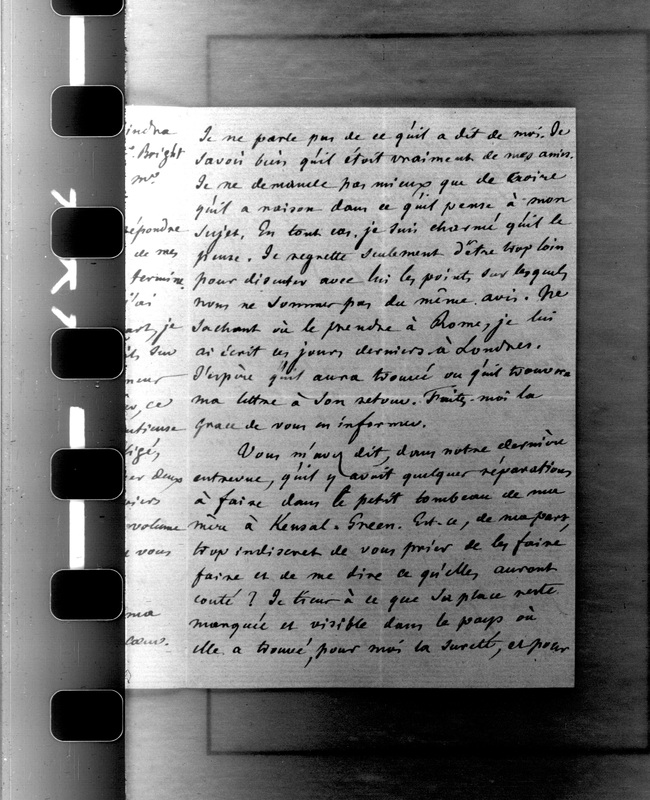 indra
Bright
mrs
répondre
de mes
termine
j'ai
art, je
sur
neur
ce
utieuse
ligé,
er deux
viers
volume
e vous
ma
cœur.
Je ne parle pas de ce qu'il a dit de moi. Je
savois bien qu'il étoit vraiment de mes amis.
Je ne demande pas mieux que de croire
qu'il a raison dans ce qu'il pense à mon
sujet. En tout cas, je suis charmé qu'il le
pense. Je regrette seulement d'être trop loin
pour discuter avec lui les points sur lesquels
nous ne sommes pas du même avis. Ne
sachant où le prendre à Rome, je lui
ai écrit ces jours derniers à Londres.
J'espère qu'il aura trouvé ou qu'il trouvera
ma lettre à son retour. Faites-moi la
grace de vous en informer.
Vous m'avez dit, dans notre dernière
entrevue, qu'il y avoit quelques réparations
à faire dans le petit tombeau de ma
mère à Kensal-Green. Est-ce, de ma part,
trop indiscret de vous prier de les faire
faire et de me dire ce qu'elles auront
couté? Je tiens à ce que sa place reste
marquée et visible dans le pays où
elle a trouvé, pour moi la sureté, et pour